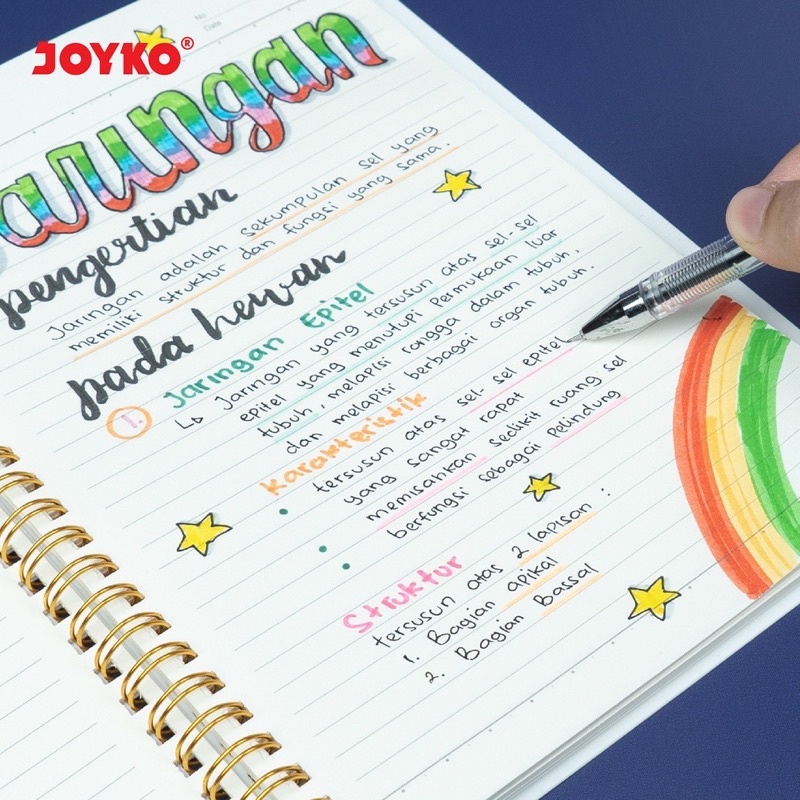 JOYKO®
No
Date
arungan
pengertian
Jaringan adalah sekumpulan sel yang
memiliki struktur dan fungsi yang sama.
pada hewan
1. Jaringan Epitel
Jaringan yang tersusun atas sel-sel
epitel yang menutupi Permukaan luar
tubuh, melapisi rongga dalam tubuh,
dan melapisi berbagai organ tubuh.
karakteristik
• tersusun atas sel-sel epitel
yang sangat rapat
• memisahkan sedikit ruang sel
• berfungsi sebagai pelindung
Struktur
tersusun atas 2 lapisan :
1. Bagian apikal
2. Bagian Bassal